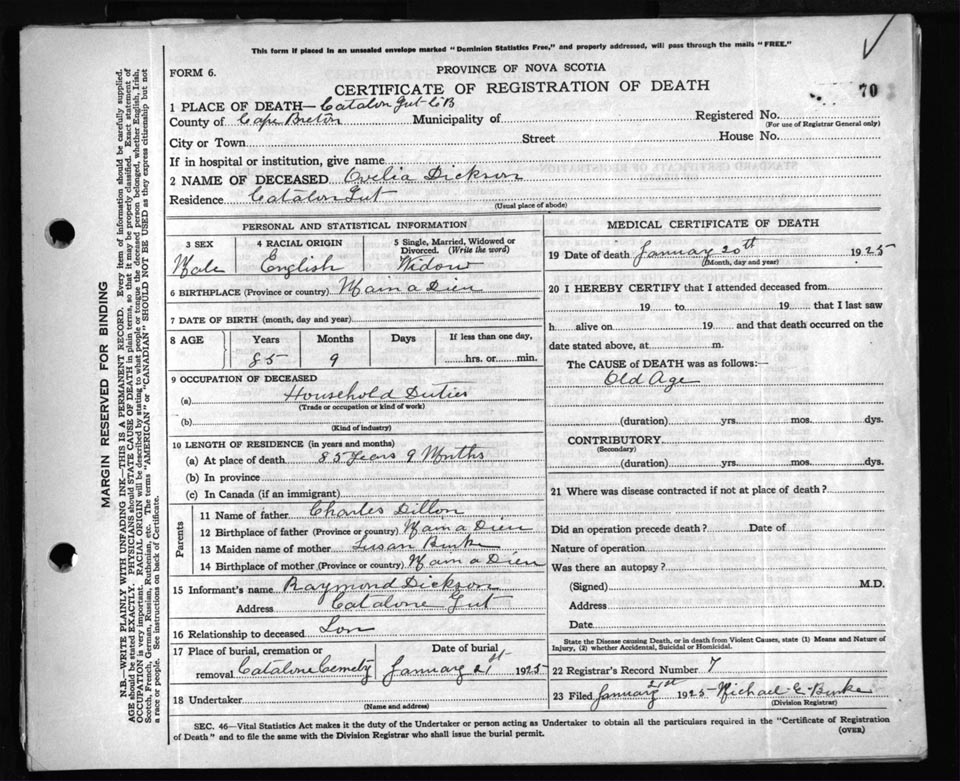 This form if placed in an unsealed envelope marked "Dominion Statistics Free," and properly addressed, will pass through the mails "FREE."
FORM 6.
PROVINCE OF NOVA SCOTIA
CERTIFICATE OF REGISTRATION OF DEATH
70
1 PLACE OF DEATH— Catalon Gut C.B
County of Cape Breton Municipality of Registered No.
(For use of Registrar General only)
City or Town Street House No.
If in hospital or institution, give name
2 NAME OF DECEASED Ovelia Dickson
Residence Catalon Gut
(Usual place of abode)
PERSONAL AND STATISTICAL INFORMATION
3 SEX 4 RACIAL ORIGIN 5 Single, Married, Widowed or Divorced. (Write the word)
Male English Widow
6 BIRTHPLACE (Province or country) Main a Dieu
7 DATE OF BIRTH (month, day and year)
8 AGE Years Months Days If less than one day,
85 9 hrs. or min.
9 OCCUPATION OF DECEASED
(a) Household Duties
(Trade or occupation or kind of work)
(b)
(Kind of industry)
10 LENGTH OF RESIDENCE (in years and months)
(a) At place of death 85 Years 9 Months
(b) In province
(c) In Canada (if an immigrant)
Parents
11 Name of father Charles Dillon
12 Birthplace of father (Province or country) Main a Dieu
13 Maiden name of mother Susan Burke
14 Birthplace of mother (Province or country) Main a Dieu
15 Informant's name Raymond Dickson
Address Catalone Gut
16 Relationship to deceased Son
17 Place of burial, cremation or Date of burial
removal Catalone Cemety January 21st 1925
18 Undertaker
(Name and address)
MEDICAL CERTIFICATE OF DEATH
19 Date of death January 20th 1925
(Month, day and year)
20 I HEREBY CERTIFY that I attended deceased from
19 to 19 that I last saw
h alive on 19 and that death occurred on the
date stated above, at m.
The CAUSE OF DEATH was as follows:—
Old Age
(duration) yrs. mos. dys.
CONTRIBUTORY
(Secondary)
(duration) yrs. mos. dys.
21 Where was disease contracted if not at place of death?
Did an operation precede death? Date of
Nature of operation
Was there an autopsy?
(Signed) M.D.
Address
Date
State the Disease causing Death, or in death from Violent Causes, state (1) Means and Nature of
Injury, (2) whether Accidental, Suicidal or Homicidal.
22 Registrar's Record Number 7
23 Filed January 21st 1925 Michael E. Burke
(Division Registrar)
SEC. 46—Vital Statistics Act makes it the duty of the Undertaker or person acting as Undertaker to obtain all the particulars required in the "Certificate of Registration
of Death" and to file the same with the Division Registrar who shall issue the burial permit.
(OVER)
MARGIN RESERVED FOR BINDING
N.B.—WRITE PLAINLY WITH UNFADING INK—THIS IS A PERMANENT RECORD. Every item of information should be carefully supplied.
AGE should be stated EXACTLY. PHYSICIANS should STATE CAUSE OF DEATH in plain terms, so that it may be properly classified. Exact statement of
OCCUPATION is very important. RACIAL ORIGIN will be described by stating to what people or tongue the deceased person belonged, whether English, Irish,
Scotch, French, German, Russian, Ruthenian, etc. The terms "AMERICAN" or "CANADIAN" SHOULD NOT BE USED as they express citizenship but not
a race or people. See instructions on back of Certificate.